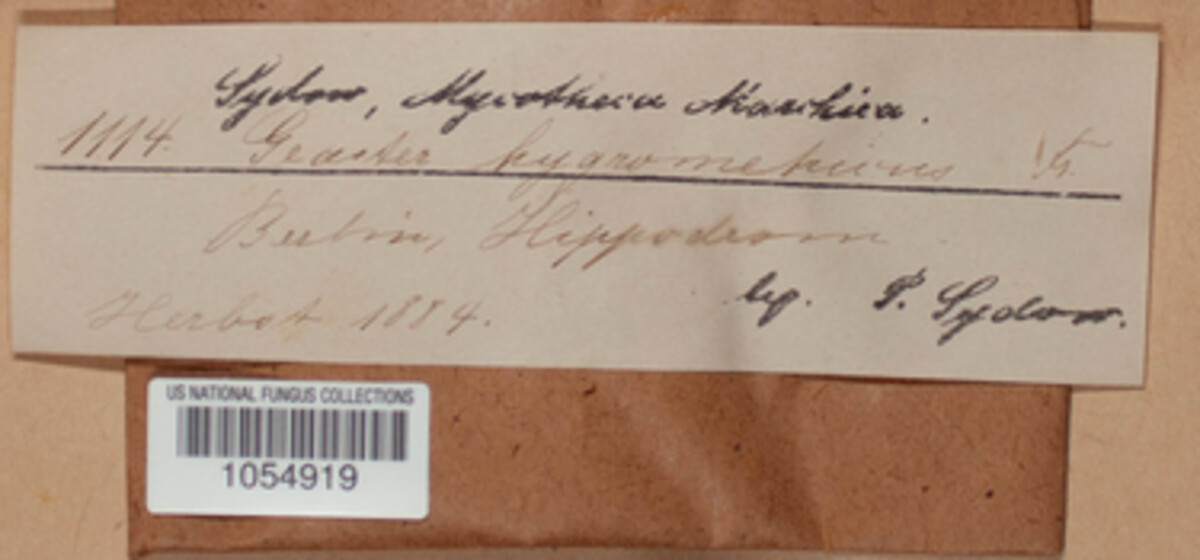 Sydow, Mycotheca Marchica.
1114. Geaster hygrometricus Fr.
Berlin, Hippodrom
leg. P. Sydow.
Herbst 1884.
US NATIONAL FUNGUS COLLECTIONS
1054919